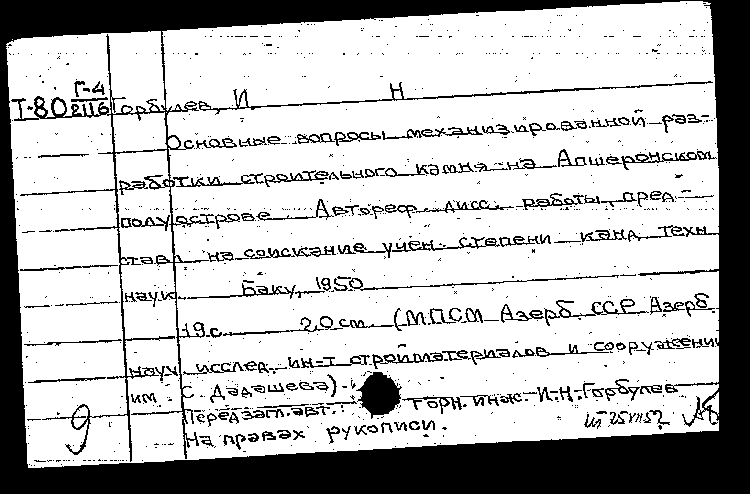 Г-4
Т-80 2116 Горбулев, И. Н
Основные вопросы механизированной раз-
работки строительного камня на Апшеронском
полуострове. Автореф. дисс. работы, пред-
ставл. на соискание учен. степени канд. техн.
наук. Баку, 1950
19 с. 20 см. (МПСМ Азерб. ССР. Азерб.
науч. исслед. ин-т стройматериалов и сооружений
им. С. Дадашева).
Перед загл. авт.: Горн. инж. И.Н. Горбулев
На правах рукописи.
9